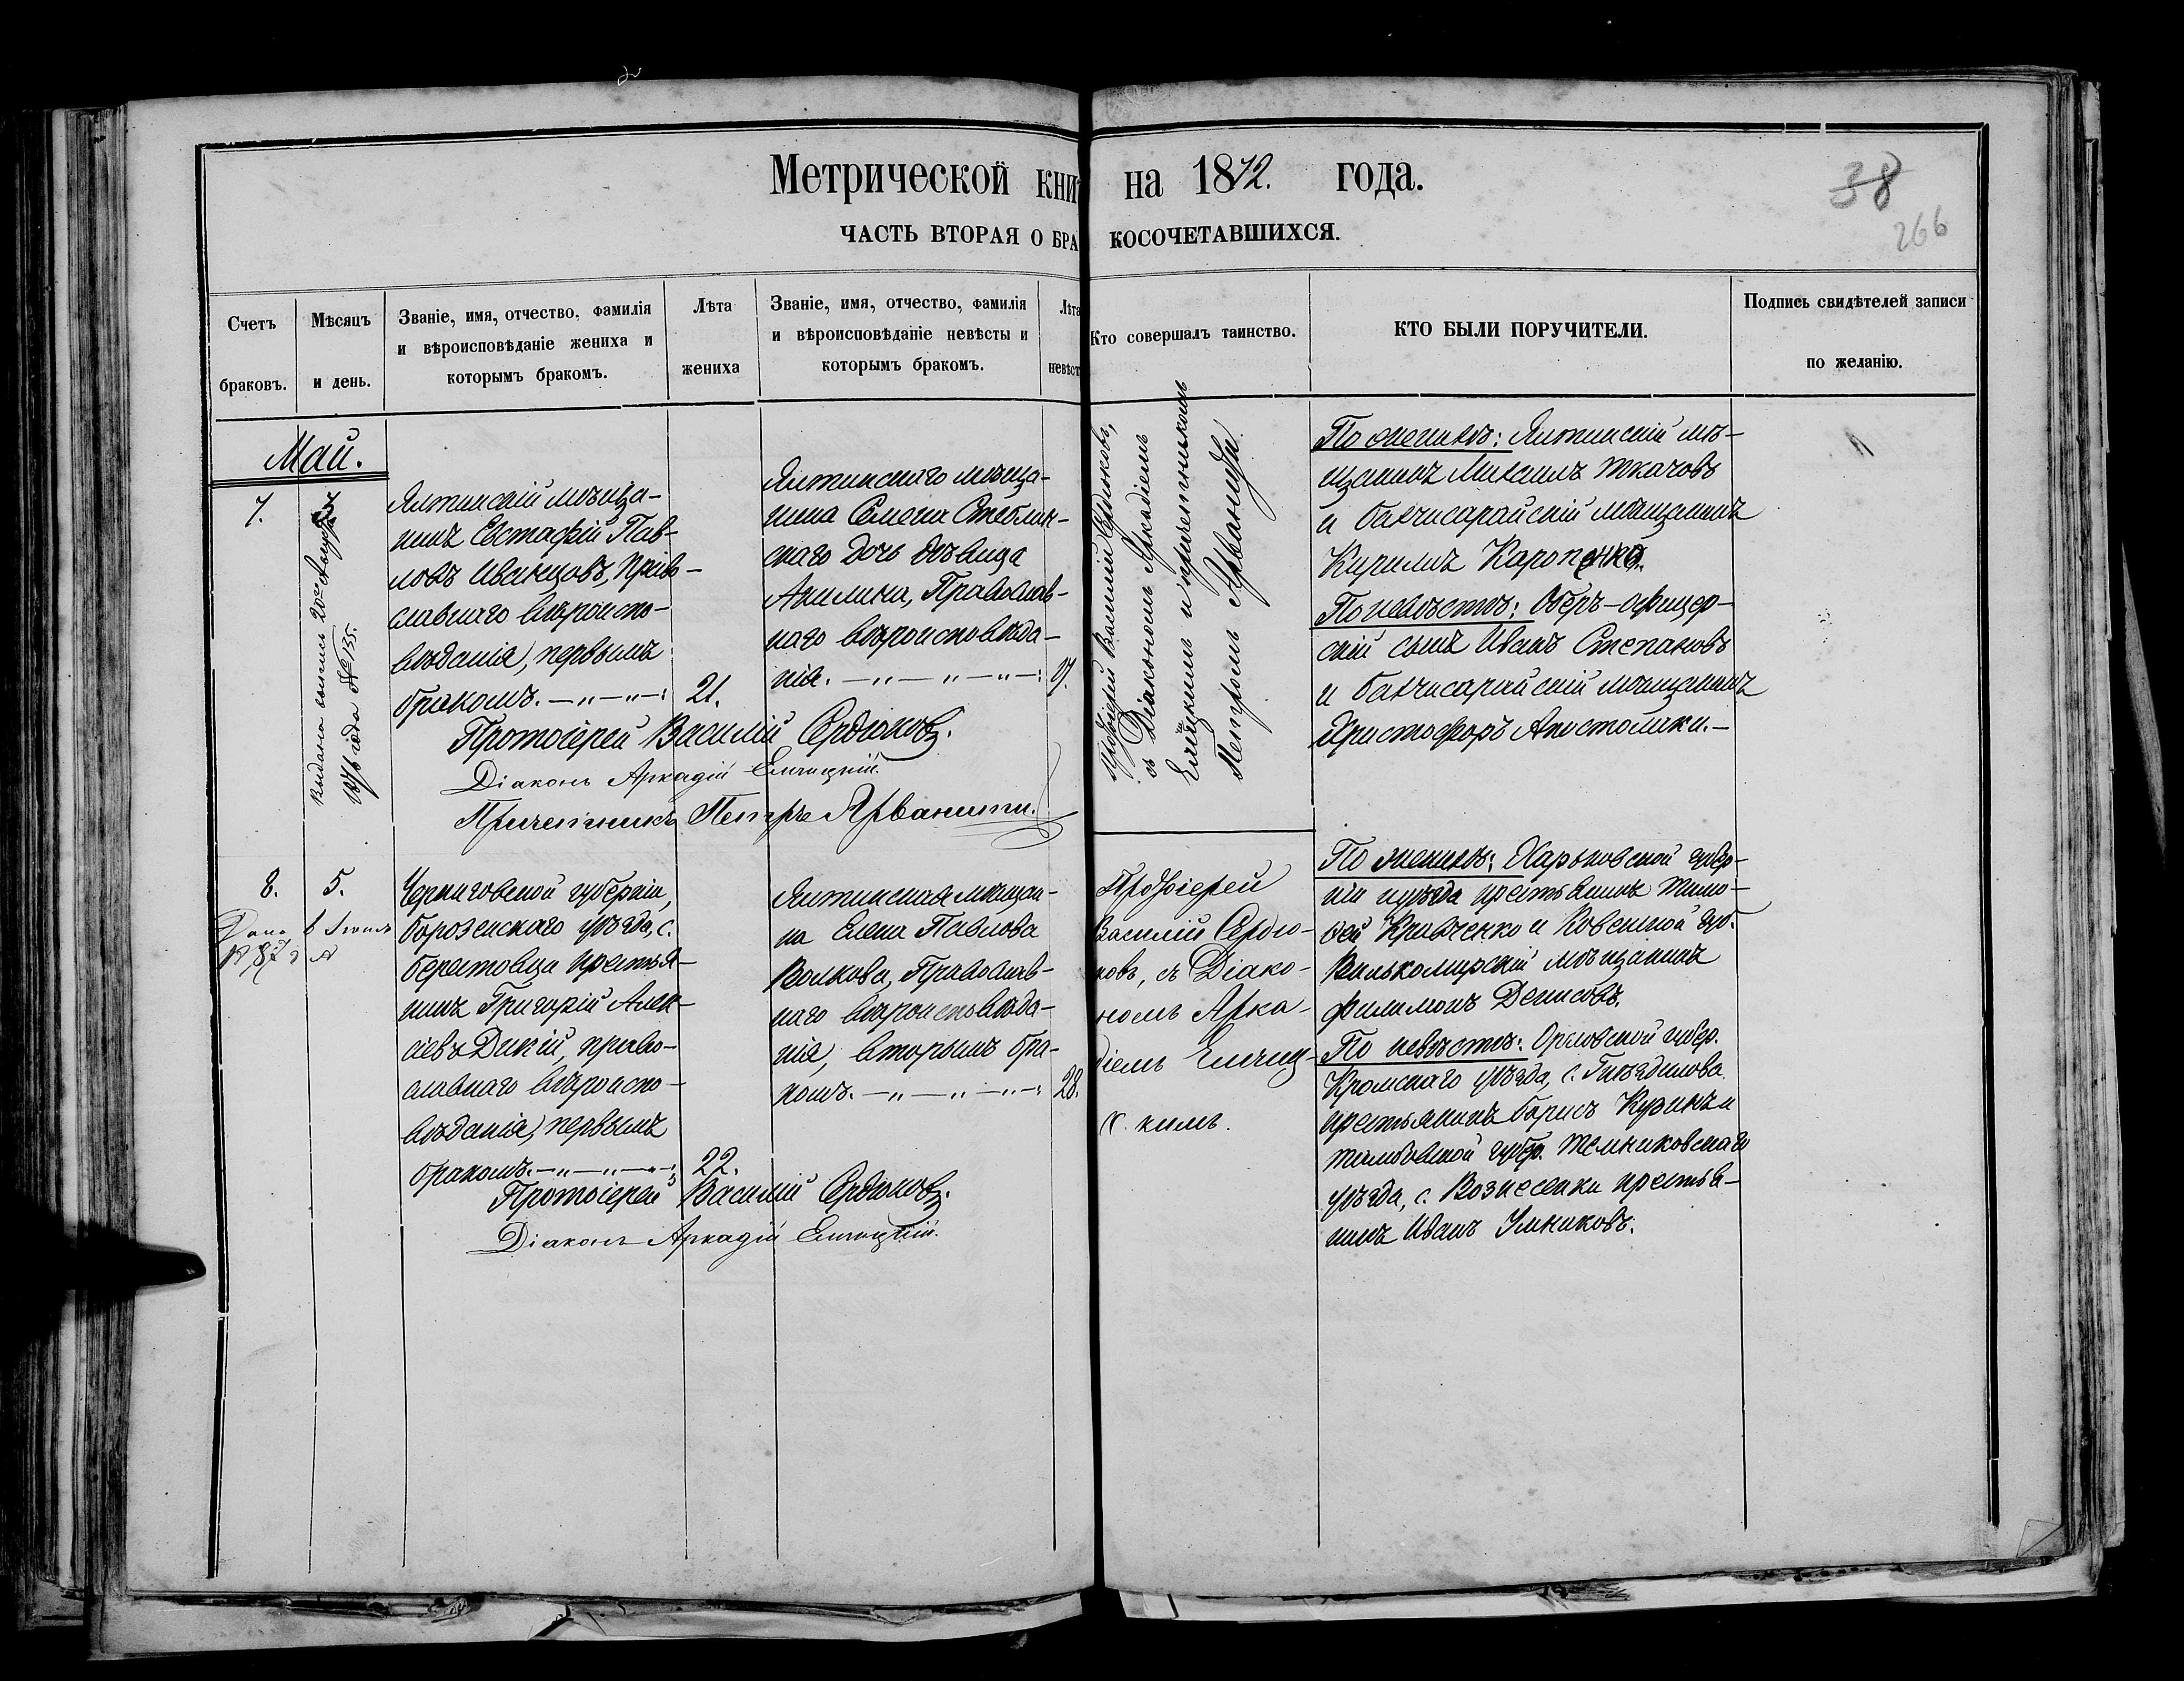 Метрической кни на 1872. года.
38
266
ЧАСТЬ ВТОРАЯ О БРА КОСОЧЕТАВШИХСЯ.
Счетъ браковъ.
Мѣсяцъ и день.
Званіе, имя, отчество, фамилія
и вѣроисповѣданіе жениха и
которымъ бракомъ.
Лѣта
жениха
Званіе, имя, отчество, фамилія
и вѣроисповѣданіе невѣсты и
которымъ бракомъ.
Лѣта
невѣст
Кто совершалъ таинство.
КТО БЫЛИ ПОРУЧИТЕЛИ.
Подпись свидѣтелей записи
по желанію.
Май.
7.
Выдана выпись 20го Августа
1876 года № 135.
Ялтинскій мѣща-
нинъ Евстафій Пав-
ловъ Иванцовъ, Право-
славнаго вѣроиспо-
вѣданія, первымъ
бракомъ. —„—„—:
21.
Ялтинскаго мѣща-
нина Семена Стеблин-
скаго дочь дѣвица
Акилина, Православ-
наго вѣроисповѣда-
нія. —„—„—„—:
17.
Протоіерей Василій Сердюковъ,
съ Діакономъ Аркадіемъ
Елчицкимъ и причетникомъ
Петромъ Арванити
По женихѣ: Ялтинскій мѣ-
щанинъ Михаилъ Ткачовъ
и Бахчисарайскій мѣщанинъ
Кирилъ Каропенко.
По невѣстѣ: Оберъ-офицер-
скій сынъ Иванъ Степановъ
и Бахчисарайскій мѣщанинъ
Христофоръ Апостолики.—
Протоіерей Василій Сердюковъ.
Діаконъ Аркадій Елчицкій.
Причетникъ Петръ Арванити.
8.
5.
Дана 6 Іюня
№ 87
Черниговской губерніи,
Борозенскаго уѣзда, с.
Берестовца крестья-
нинъ Григорій Алек-
сіевъ Дикій, право-
славнаго вѣроиспо-
вѣданія, первымъ
бракомъ. —„—„—„—:
22.
Ялтинская мѣщан-
ка Елена Павлова
Волкова, Православ-
наго вѣроисповѣда-
нія, вторымъ бра-
комъ. —„—„—„—:
28.
Протоіерей
Василій Сердю-
ковъ, съ Діако-
номъ Арка-
діемъ Елчиц-
кимъ.
По женихѣ: Харьковской губер-
ніи и уѣзда крестьянинъ Тимо-
ѳей Кравченко и Ковенской губ.
Вилькомирскій мѣщанинъ
Филимонъ Денисовъ.
По невѣстѣ: Орловской губер.
Кромскаго уѣзда, с. Гнѣздилова
крестьянинъ Борисъ Кузинъ и
Тамбовской губер. Темниковскаго
уѣзда, с. Вознесенки крестья-
нинъ Иванъ Умниковъ.
Протоіерей Василій Сердюковъ.
Діаконъ Аркадій Елчицкій.